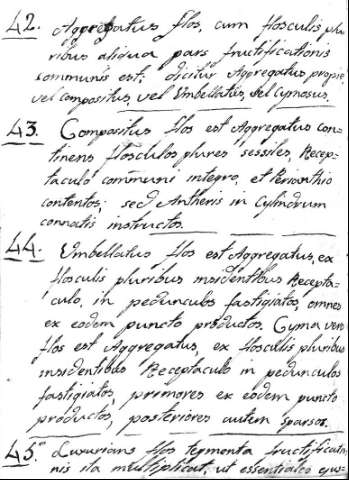 42. Aggregatus flos, cum flosculis plu
ribus aliqua pars fructificationis
communis est; dicitur Aggregatus, proprie,
vel compositus, vel Umbellatus, vel Cymosus.
43. Compositus flos est Aggregatus con-
tinens flosculos plures sessiles, Recep-
taculo communi integro, et Perianthio
contentos; sed Antheris in Cylindrum
connatis instructos.
44. Umbellatus flos est Aggregatus, ex
flosculis pluribus insidentibus Recepta-
culo, in pedunculos fastigiatos, omnes
ex eodem puncto productos. Cyma vero
flos est Aggregatus, ex flosculis pluribus
insidentibus Receptaculo in pedunculos
fastigiatos, primores ex eodem puncto
productos, posteriores autem sparsos.
45. Luxurians flos tegmenta fructificatio
nis ita multiplicat, ut essentiales ejus-